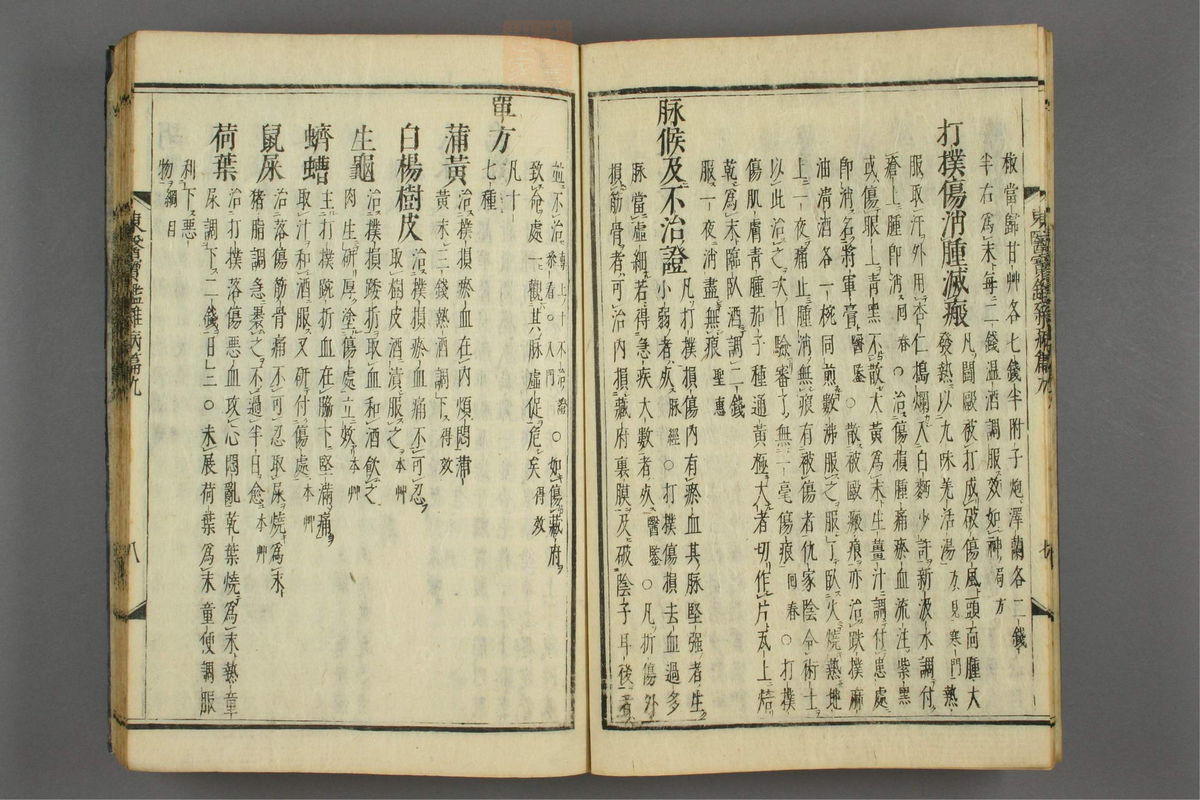 椒當歸甘艸各七錢半附子炮澤蘭各二錢
半右爲末每二錢温酒調服效如神局方
打撲傷消腫滅瘢凡鬪毆被打成破傷風頭面腫大
發熱以九味羌活湯方見寒門熱
服取汗外用杏仁搗爛入白麪少許新汲水調付
瘡上腫即消回春○治傷損腫痛瘀血流注紫黑
或傷眼上靑黑不散大黃爲末生薑汁調付患處
即消名將軍膏醫鑒○散被毆瘢痕亦治跌撲麻
油淸酒各一椀同煎數沸服之服了臥火燒熱地
上一夜痛止腫消無痕有被傷者仇家陰令術士
以此治之次日驗審了無一毫傷痕回春○打撲
傷肌膚靑腫茄子種通黃極大者切作片瓦上焙
乾爲末臨臥酒調二錢
服一夜消盡無痕聖惠
脉候及不治證凡打撲損傷內有瘀血其脉堅强者生
小弱者死脉經○打撲傷損去血過多
脉當虛細若得急疾大數者死醫鑒○凡折傷外
損筋骨者可治內損藏府裏膜及破陰子耳後者
並不治入門○如傷藏府
致命處一觀其脉虛促危矣得效
單方凡十七種
蒲黃治撲損瘀血在內煩悶蒲
黃末三錢熱酒調下得效
白楊樹皮治撲損瘀血痛不可忍
取樹皮酒漬服之本艸
生龜治撲損踒折取血和酒飮之
肉生研厚塗傷處立效本艸
蠐螬主打撲踠折血在脇下堅滿痛
取汁和酒服又研付傷處本艸
鼠屎治落傷筋骨痛不可忍取屎燒爲末
猪脂調急裹之不過半日愈本艸
荷葉治打撲落傷惡血攻心悶亂乾葉燒爲末熱童
尿調下二錢日三○未展荷葉爲末童便調服
利下惡
物綱目
東醫寶鑑雜病篇九
八